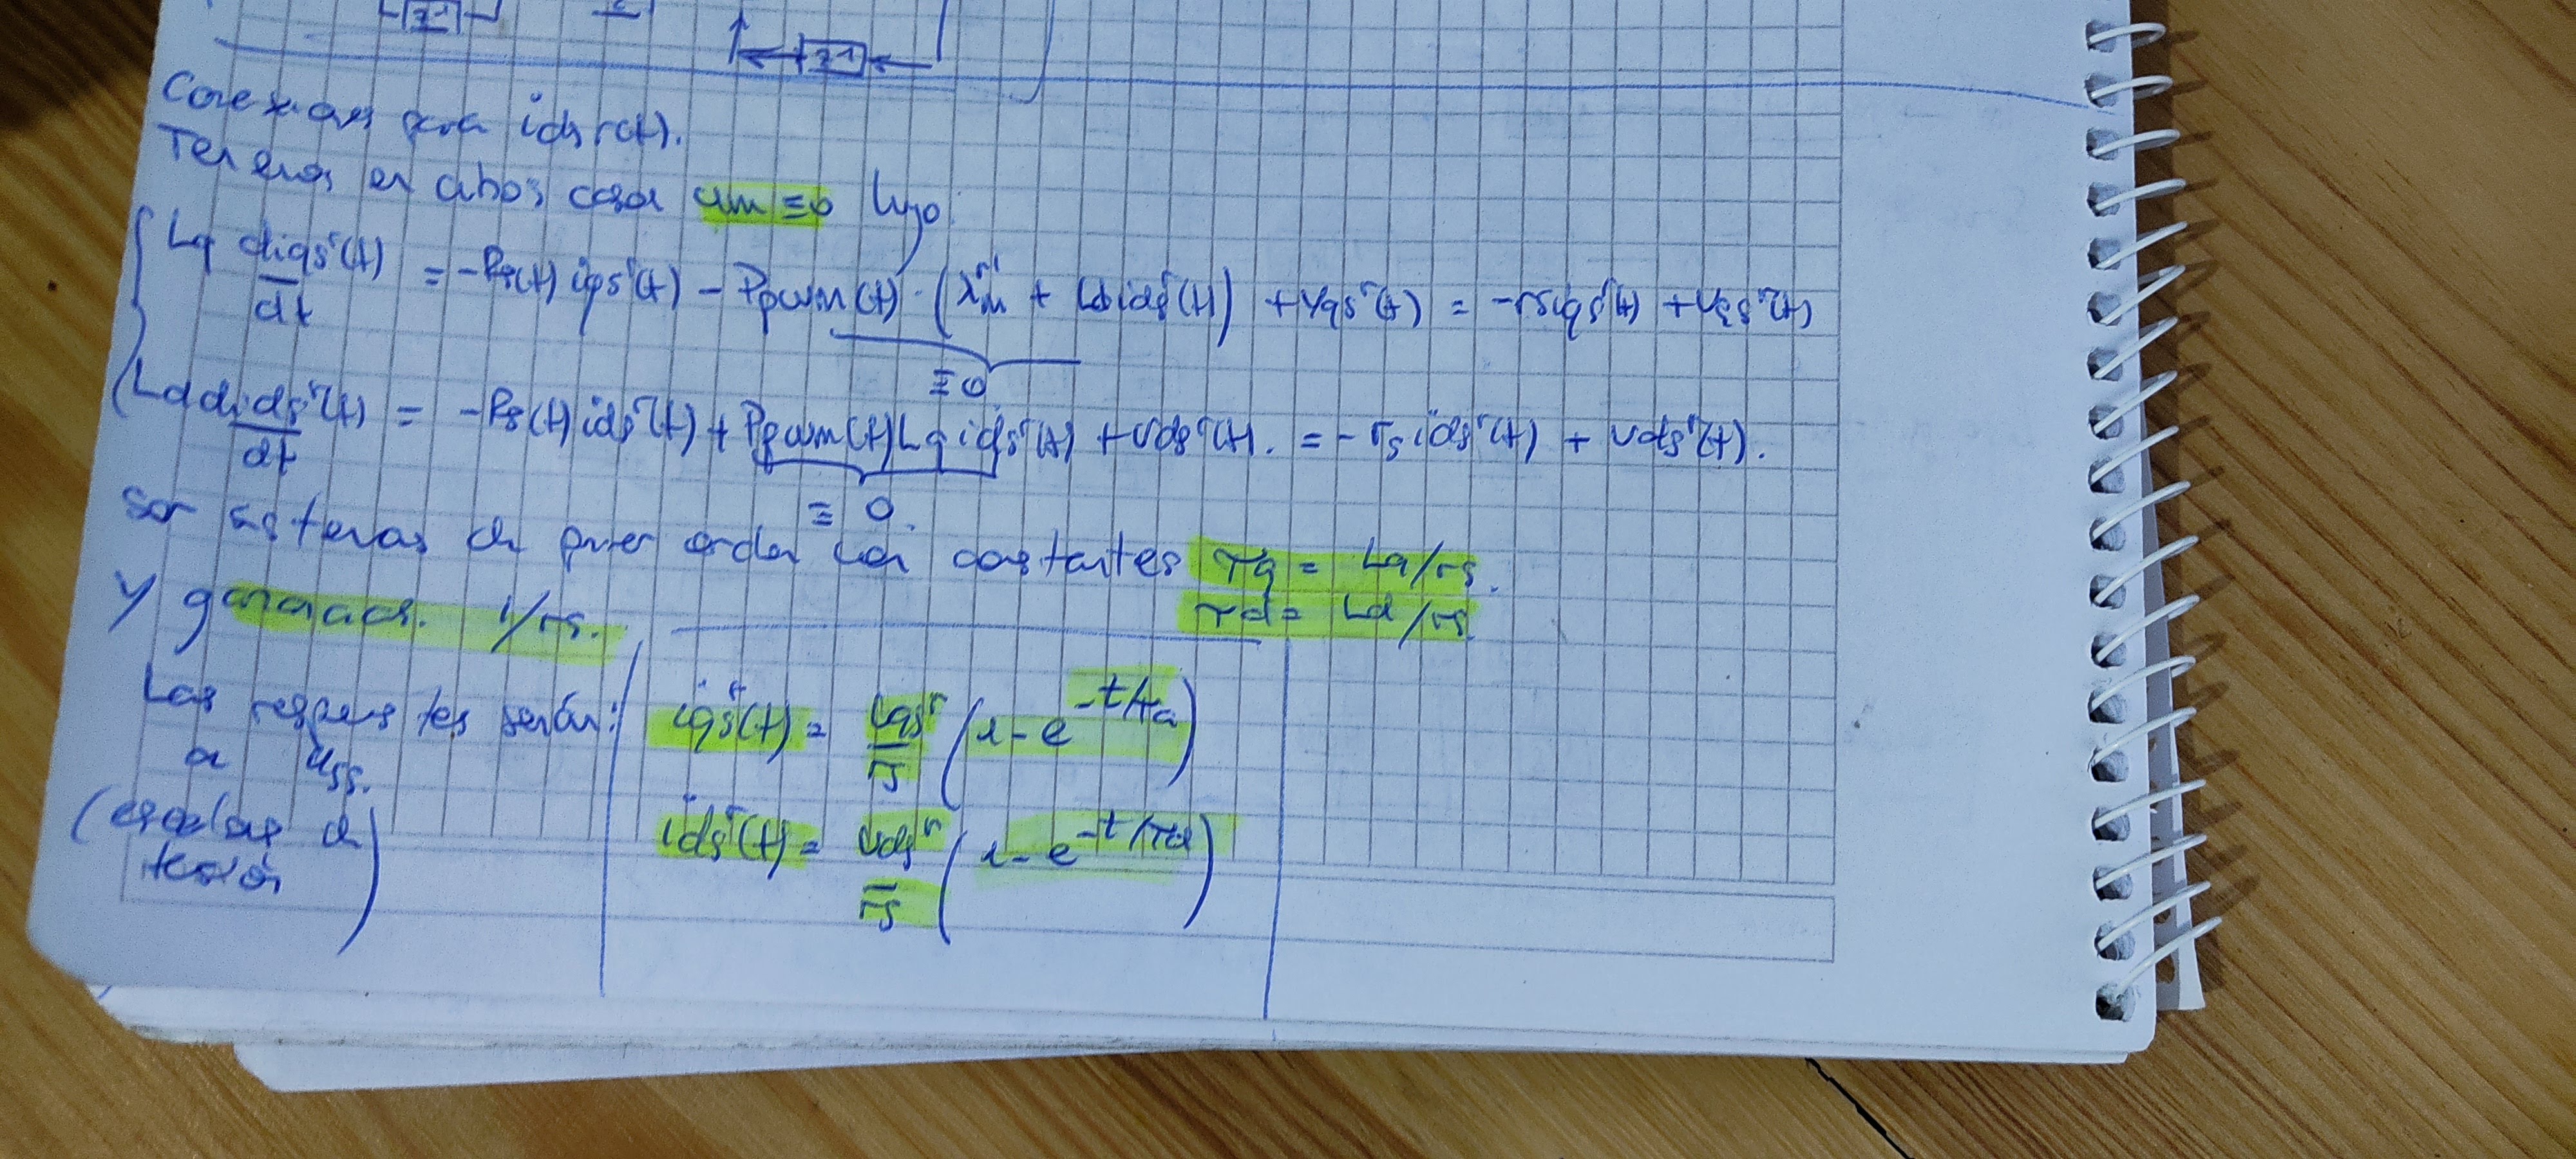 z⁻¹
z⁻¹
Conexiones para idsʳ(t).
Tenemos en ambos casos ωm ≡ 0 luego:
Lq diqsʳ(t)/dt = -Rs(t) iqsʳ(t) - Ppωm(t) · (λ'ʳm + Ld idsʳ(t)) + vqsʳ(t) = -rs iqsʳ(t) + vqsʳ(t)
≡ 0
Ld didsʳ(t)/dt = -Rs(t) idsʳ(t) + Ppωm(t) Lq iqsʳ(t) + vdsʳ(t). = -rs idsʳ(t) + vdsʳ(t).
≡ 0.
Son sistemas de primer orden con constantes τq = Lq/rs.
τd = Ld/rs
y ganancias. 1/rs.
Las respuestas serán:
a
(escalones de
tensión)
iqsʳ(t) = vqsʳ/rs (1 - e^-t/τq)
idsʳ(t) = vdsʳ/rs (1 - e^-t/τd)